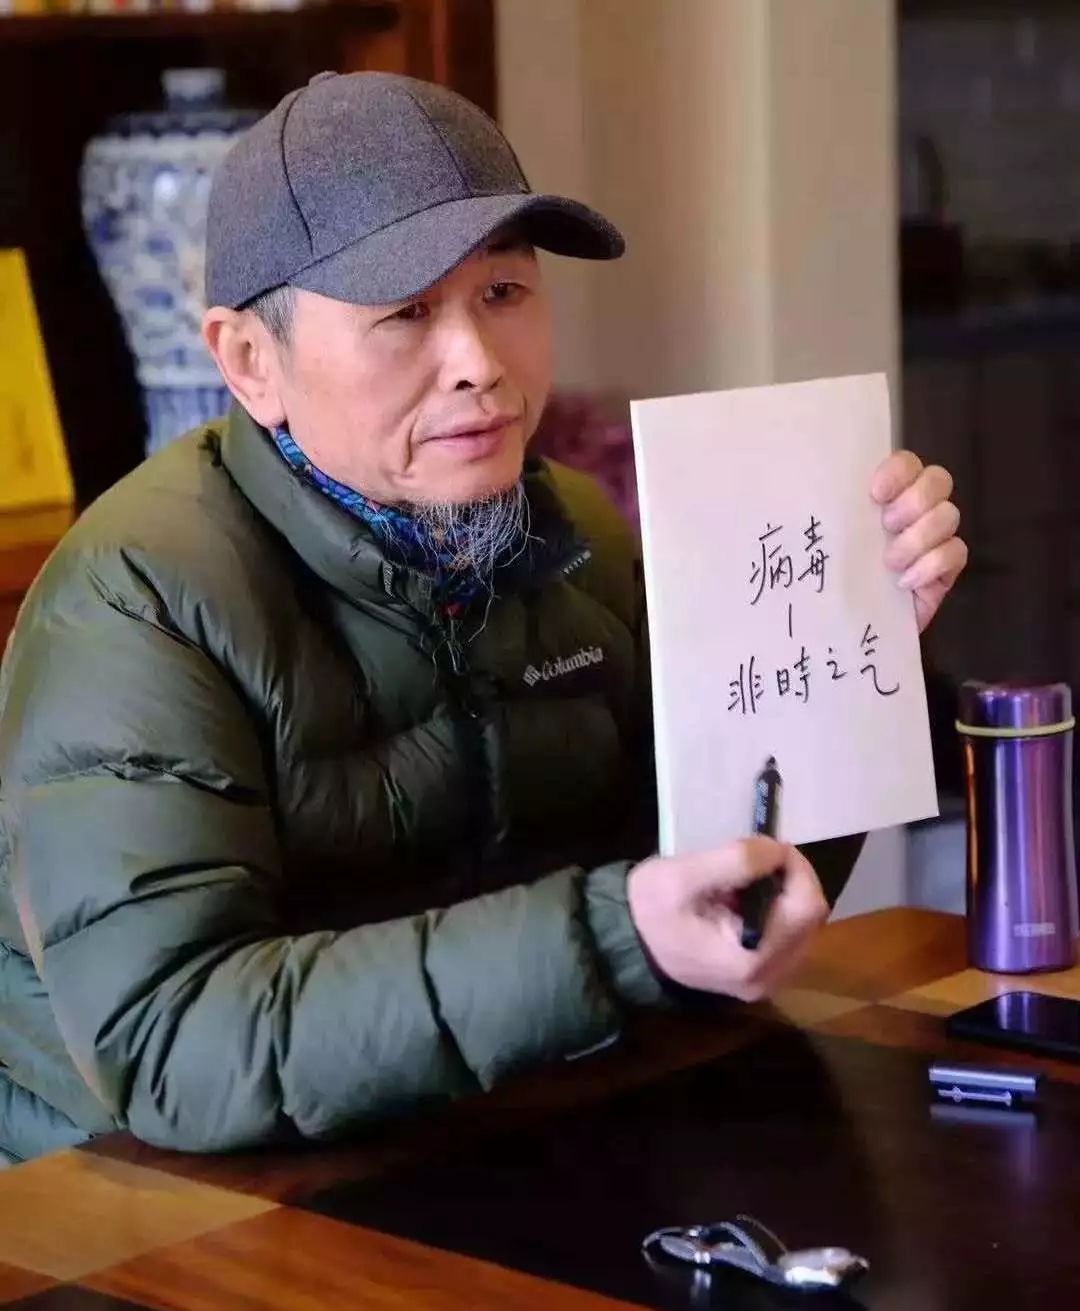 Columbia
病毒
-
非時之气
THERMOS